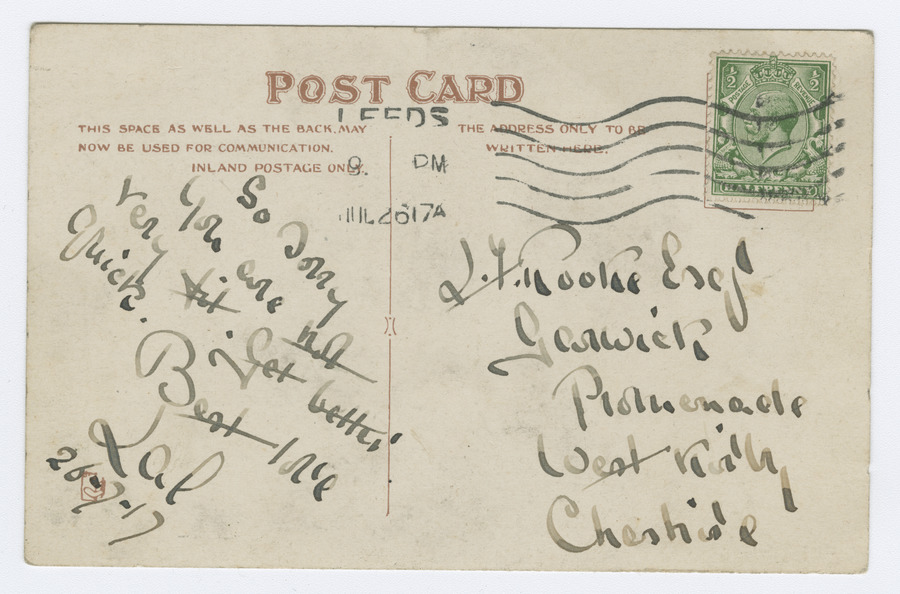 POST CARD
THIS SPACE AS WELL AS THE BACK, MAY
NOW BE USED FOR COMMUNICATION.
INLAND POSTAGE ONLY.
THE ADDRESS ONLY TO BE
WRITTEN HERE.
LEEDS
9. PM
JUL 26 17 A
½ ½
POSTAGE REVENUE
HALFPENNY
So sorry
you are not
very fit
Get better
quick.
Best love
Lal
26-7-17
L. F. Rooke Esq
Garwick
Promenade
West Kirby
Cheshire